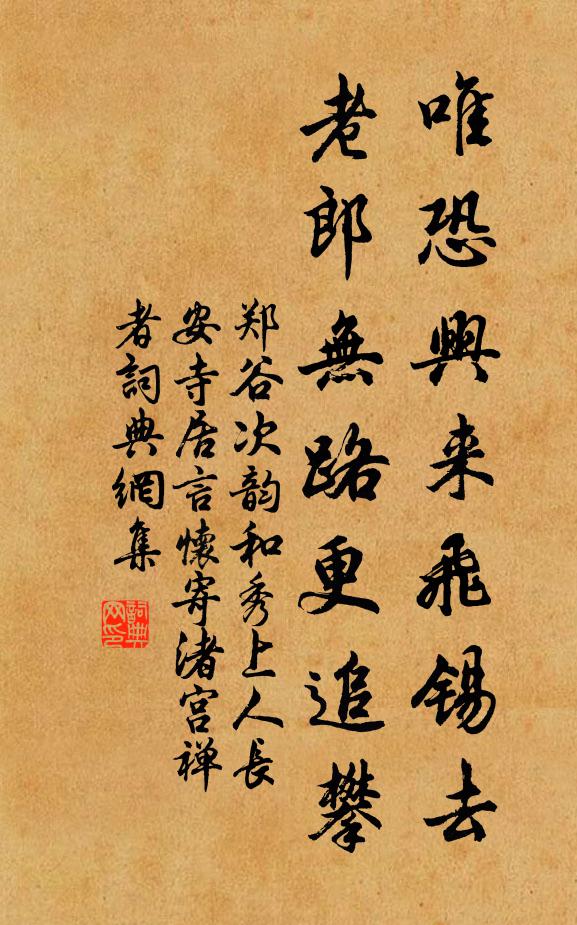 唯恐興来飛锡去
老郎無路更追攀
郑谷次韵和秀上人長
安寺居言懷寄渚宫禅
者詞典網集
詞典网印